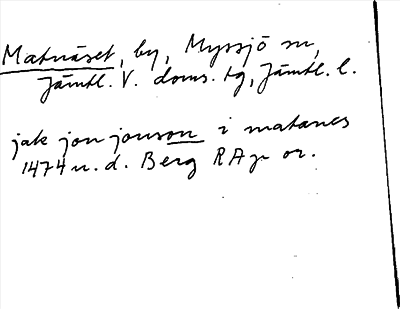 Matnäset, by, Myssjö sn,
Jämtl. V. doms. tg, Jämtl. l.
jak jon jonson i matanes
1474 u. d. Berg RAp or.